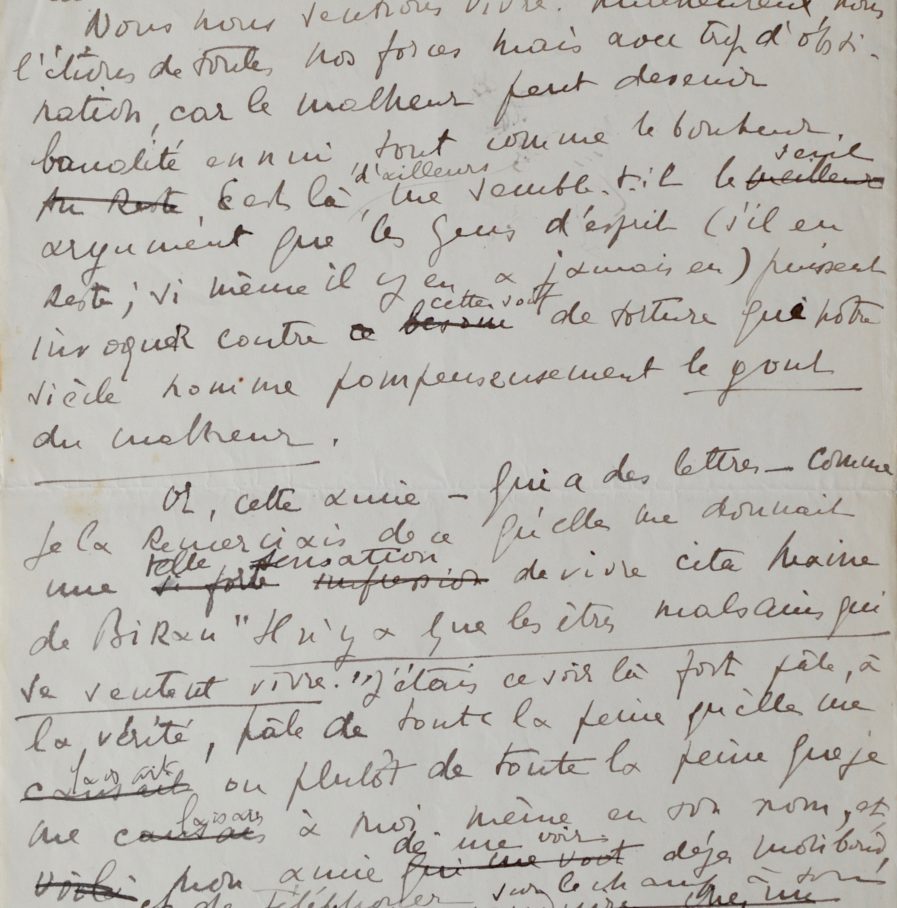 Nous nous sentions vivre. Malheureux nous
l'étions de toutes nos forces mais avec trop d'obsti-
nation, car le malheur peut devenir
banalité ennui, tout comme le bonheur.
Au reste, C'est là, d'ailleurs, me semble-t-il le meilleur seul
argument que les gens d'esprit (s'il en
reste ; si même il y en a jamais eu) puissent
invoquer contre ce besoin cette soif de torture que notre
siècle nomme pompeusement le gout
du malheur.
Or, cette amie – qui a des lettres – comme
je la remerciais de ce qu'elle me donnait
une si forte telle impression sensation de vivre cita Maine
de Biran "Il n'y a que les êtres malsains qui
se sentent vivre." J'étais ce soir là fort pâle, à
la vérité, pâle de toute la peine qu'elle me
causait faisait ou plutôt de toute la peine que je
me causais faisais à moi même en son nom, et
voilà mon amie qui me voit de me voir déjà moribond,
et de téléphoner sur le champ à